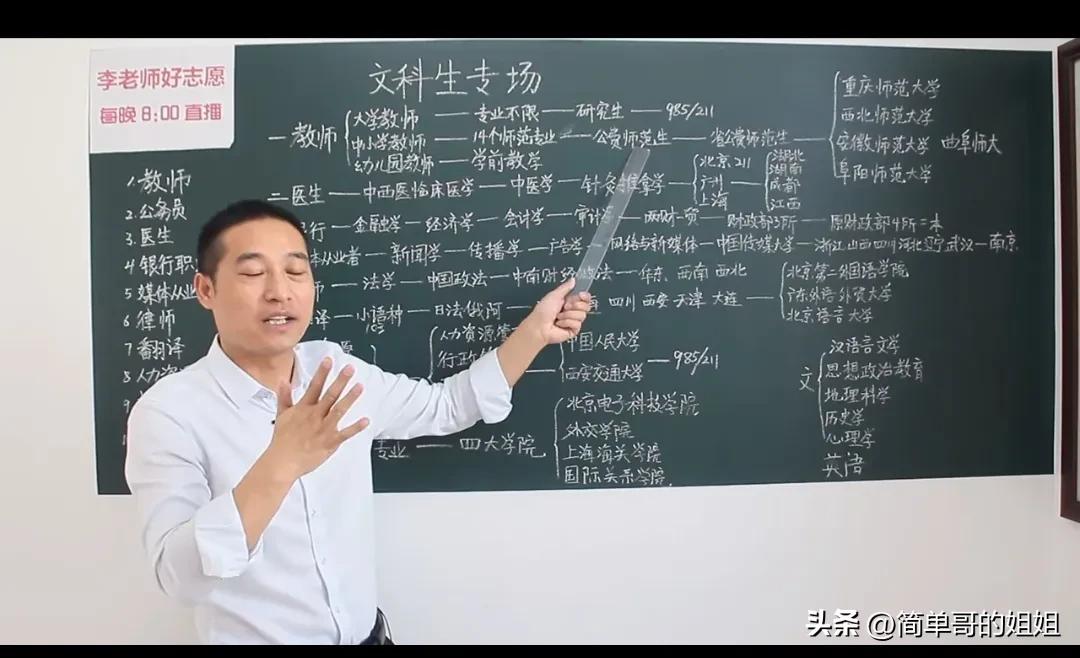 李老师好志愿
每晚 8:00 直播
文科生专场
1.教师
2.公务员
3.医生
4 银行职
5 媒体从业
6 律师
7 翻译
8 人力资
一 教师
大学教师 — 专业不限 — 研究生 — 985/211
中小学教师 — 14个师范专业 — 公费师范生 — 省公费师范生
幼儿园教师 — 学前教学
重庆师范大学
西北师范大学
安徽师范大学 曲阜师大
阜阳师范大学
二 医生 — 中西医临床医学 — 中医学 — 针灸推拿学
北京 211
广州
上海
湖北
湖南
成都
江西
行 — 金融学 — 经济学 — 会计学 — 审计学 — 两财一贸 — 财政部3所 — 原财政部4所=本
体从业者 — 新闻学 — 传播学 — 广告学 — 网络与新媒体 — 中国传媒大学 — 浙江 山西 四川 河北 辽宁 武汉 — 南京
师 — 法学 — 中国政法 — 中南财经政法 — 华东、西南 西北
译 — 小语种 — 日法俄阿 四川 西安 天津 大连
北京第二外国语学院
广东外语外贸大学
北京语言大学
人力资源管
行政
中国人民大学
西安交通大学 — 985/211
专业 — 四大学院
北京电子科技学院
外交学院
上海海关学院
国际关系学院
文
汉语言文学
思想政治教育
地理科学
历史学
心理学
英语
头条 @简单哥的姐姐